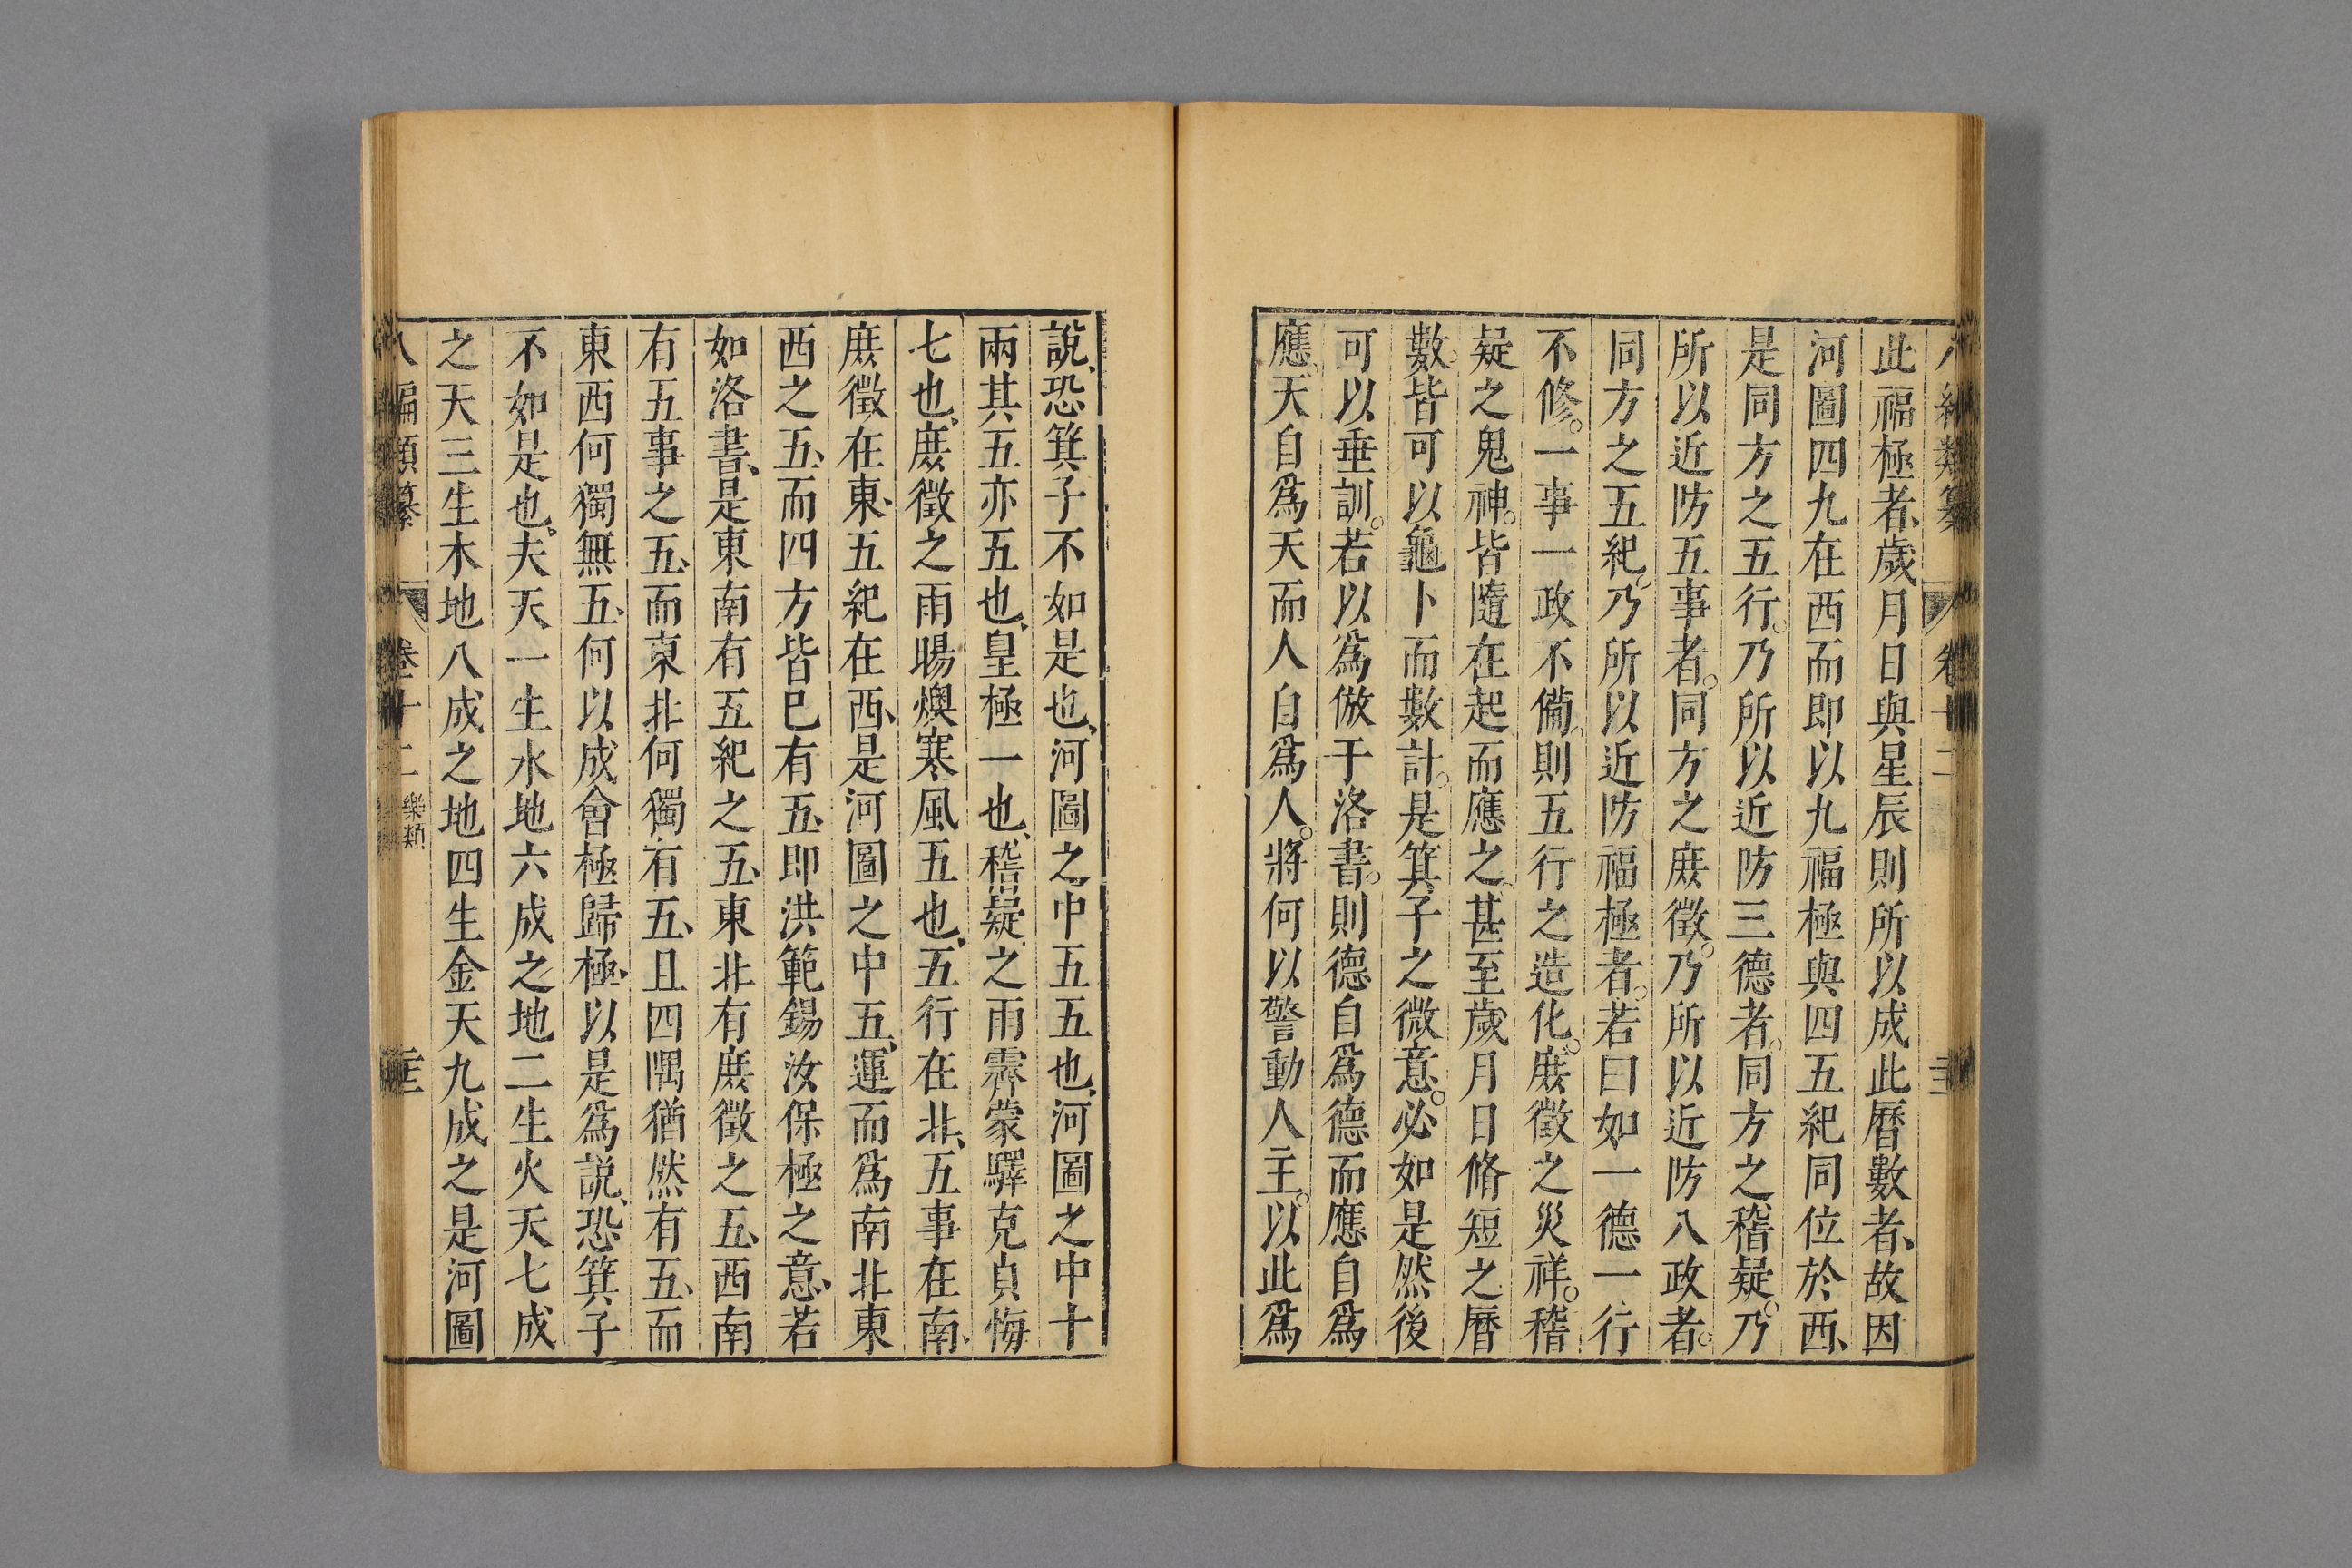 八編類纂 卷十二
此福極者、歲月日與星辰則所以成此曆數者、故因
河圖四九在西而即以九福極與四五紀同位於西、
是同方之五行。乃所以近防三德者。同方之稽疑。乃
所以近防五事者。同方之庶徵。乃所以近防八政者。
同方之五紀。乃所以近防福極者。若曰如一德一行
不修。一事一政不備。則五行之造化。庶徵之災祥。稽
疑之鬼神。皆隨在起而應之。甚至歲月日脩短之曆
數。皆可以龜卜而數計。是箕子之微意。必如是然後
可以垂訓。若以爲倣于洛書。則德自爲德而應自爲
應。天自爲天而人自爲人。將何以警動人主。以此爲
說、恐箕子不如是也、河圖之中五五也、河圖之中十
兩其五亦五也、皇極一也、稽疑之雨霽蒙驛克貞悔
七也、庶徵之雨暘燠寒風五也、五行在北、五事在南、
庶徵在東、五紀在西、是河圖之中五、運而爲南北東
西之五、而四方皆巳有五、即洪範錫汝保極之意、若
如洛書、是東南有五紀之五、東北有庶徵之五、西南
有五事之五、而東北何獨有五、且四隅猶然有五、而
東西何獨無五、何以成會極歸極、以是爲說、恐箕子
不如是也、夫天一生水地六成之地二生火天七成
之天三生木地八成之地四生金天九成之是河圖
八編類纂 卷十二 樂類